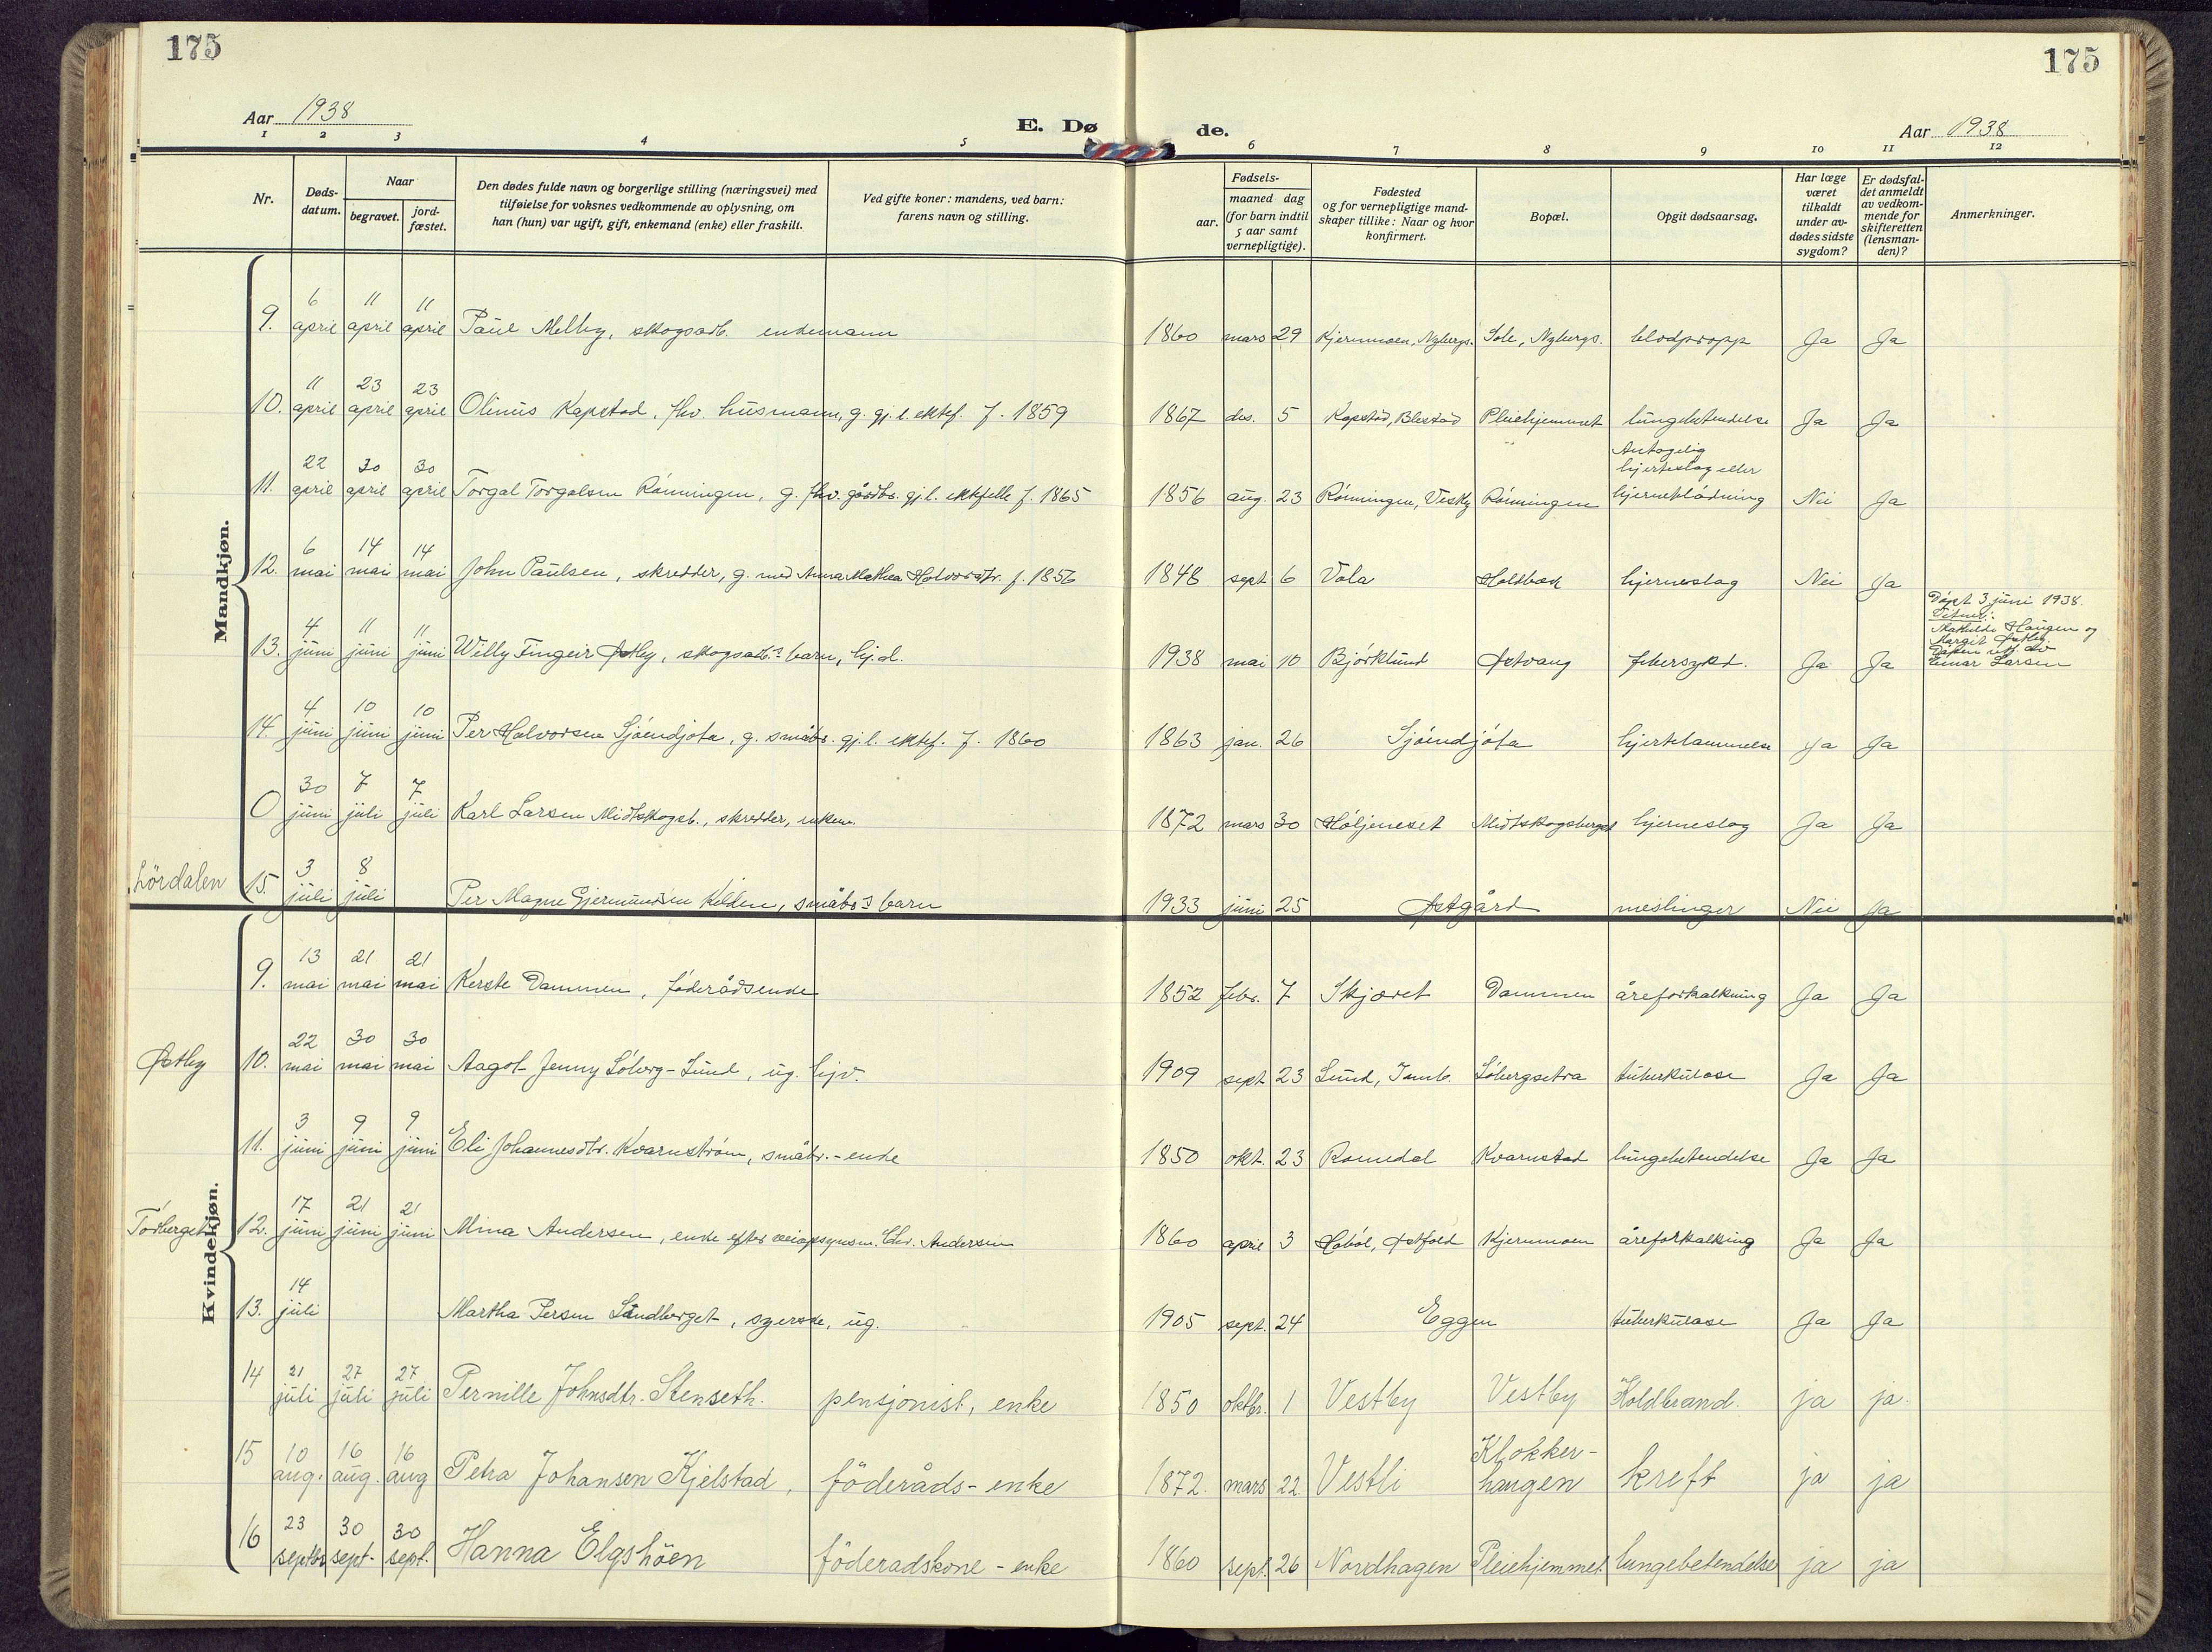 175
175
Aar 1938
E. Dø
de.
Aar 1938
1 2 3 4 5 6 7 8 9 10 11 12
Nr.
Døds-
datum.
Naar
begravet.
jord-
fæstet.
Den dødes fulde navn og borgerlige stilling (næringsvei) med
tilføielse for voksnes vedkommende av oplysning, om
han (hun) var ugift, gift, enkemand (enke) eller fraskilt.
Ved gifte koner: mandens, ved barn:
farens navn og stilling.
Fødsels-
aar.
maaned dag
(for barn indtil
5 aar samt
vernepligtige).
Fødested
og for vernepligtige mand-
skaper tillike: Naar og hvor
konfirmert.
Bopæl.
Opgit dødsaarsag.
Har læge
været
tilkaldt
under av-
dødes sidste
sygdom?
Er dødsfal-
det anmeldt
av vedkom-
mende for
skifteretten
(lensman-
den)?
Anmerkninger.
Mandkjøn.
6 11 11
9. april april april Paul Melby, skogsarb. enkemann 1860 mars 29 Kjernmoen, Nybergs. Sole, Nybergs. blodpropp Ja Ja
11 23 23
10. april april april Olinus Kapstad, fhv. husmann, g. gj.l. ektef. f. 1859 1867 des. 5 Kapstad, Blestad Pleiehjemmet lungebetendelse Ja Ja
22 30 30
Antagelig
hjerteslag eller
11. april april april Torgal Torgalsen Rönningen, g. fhv. gårdbr. gj.l. ektefelle f. 1865 1856 aug. 23 Rönningen, Vestby Rönningen hjerneblödning Nei Ja
6 14 14
12. mai mai mai John Paulsen, skredder, g. med Anna Mathea Halvorsdtr. f. 1856 1848 sept. 6 Vola Holdbæk hjerneslag Nei Ja
Döpt 3 juni 1938.
Vitner:
Mathilde Haugen og
Margit Østby.
Dåpen utf. av
Einar Larsen
4 11 11
13. juni juni juni Willy Fingeir Østby, skogsarb.s barn, hj.d. 1938 mai 10 Björklund Østvang febersykd. Ja Ja
4 10 10
14. juni juni juni Per Halvorsen Sjöendjöta, g. småbr. gj.l. ektef. f. 1860 1863 jan. 26 Sjöendjöta hjertelammelse Ja Ja
30 7 7
0 juni juli juli Karl Larsen Midtskogsb., skredder, enkem. 1872 mars 30 Höljeneset Midtskogsberget hjerneslag Ja Ja
3 8
Lördalen 15. juli juli Per Magne Gjermundsen Kilden, småbr.s barn 1933 juni 25 Østgård meslinger Nei Ja
Kvindekjøn.
13 21 21
9. mai mai mai Kerste Dammen, föderådsenke 1852 febr. 7 Skjæret Dammen åreforkalkning Ja Ja
22 30 30
Østby 10. mai mai mai Aagot Jenny Söberg-Lund, ug. hjv. 1909 sept. 23 Lund, Jamb. Söbergsetra tuberkulose Ja Ja
3 9 9
11. juni juni juni Eli Johannesdtr. Kvarnström, småbr.-enke 1850 okt. 23 Romedal Kvarnstad lungebetendelse Ja Ja
17 21 21
Törberget 12. juni juni juni Mina Andersen, enke efter veiopsynsm. Chr. Andersen 1860 april 3 Höböl, Østfold Kjernmoen åreforkalkning Ja Ja
14
13. juli Martha Persen Sandberget, syerske, ug. 1905 sept. 24 Eggen tuberkulose Ja Ja
21 27 27
14 juli juli juli Pernille Johnsdtr. Stenseth. pensjonist, enke 1850 oktbr. 1 Vestby Vestby Koldbrand. ja ja.
10 16 16
Klokker-
15 aug. aug. aug Petra Johansen Kjelstad, föderåds-enke 1872. mars 22 Vestli haugen kreft ja ja
23 30 30
16 septbr sept. sept. Hanna Elgshöen föderadskone - enke 1860 sept. 26 Nordhagen Pleiehjemmet. lungebetendelse ja ja